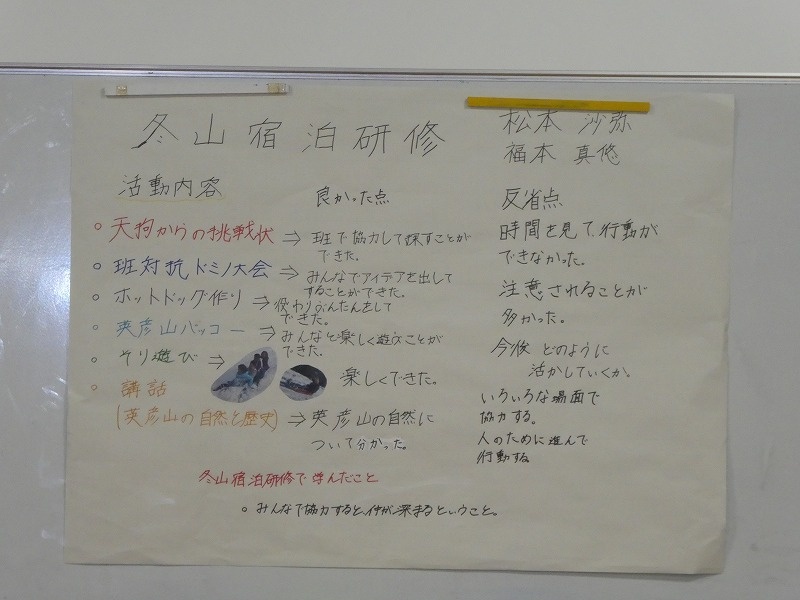 冬山宿泊研修
松本 沙弥
福本 真悠
活動内容
良かった点
○ 天拘からの挑戦状 ⇒ 班で協力して探すことが
できた。
○ 班対抗ドミノ大会 ⇒ みんなでアイデアを出して
することができた。
○ ホットドッグ作り ⇒ 役わりぶんたんをして
できた。
○ 英彦山バッコー ⇒ みんなと楽しく遊ぶことが
できた。
○ そり遊び ⇒ 楽しくできた。
○ 講話
(英彦山の自然と歴史) ⇒ 英彦山の自然に
ついて分かった。
反省点
時間を見て、行動が
できなかった。
注意されることが
多かった。
今後 どのように
活かしていくか。
いろいろな場面で
協力する。
人のために進んで
行動する。
冬山宿泊研修で学んだこと
○ みんなで協力すると、仲が深まるということ。